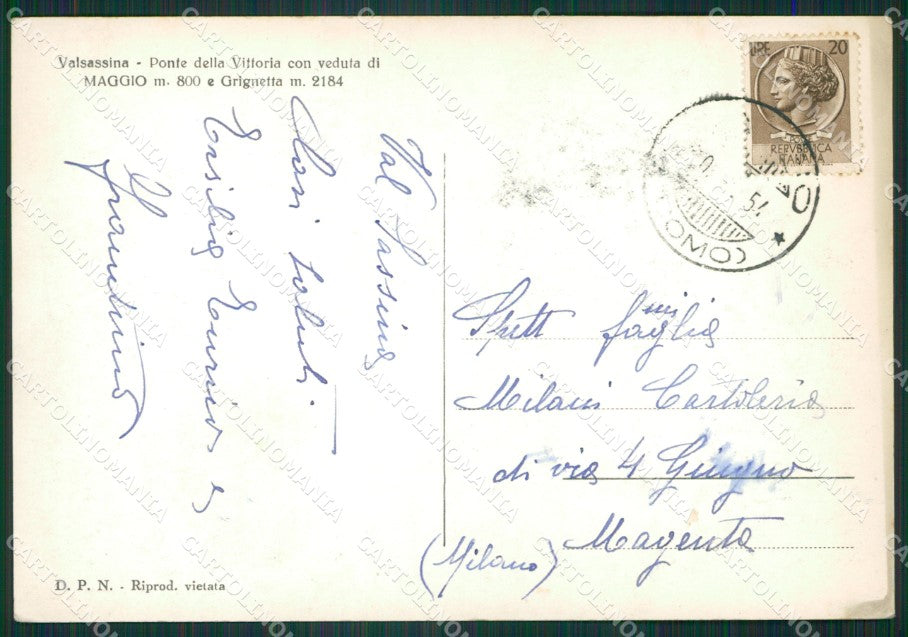 Valsassina - Ponte della Vittoria con veduta di
MAGGIO m. 800 e Grignetta m. 2184
Val Sassina
Cari saluti
Ersilia Enrico e
Giannina
D. P. N. - Riprod. vietata
LIRE 20
REPVBBLICA
ITALIANA
COMO
Spett famiglia
Milani Cartoleria
di via 4 Giugno
Magenta
(Milano)
CARTOLINOMANIA